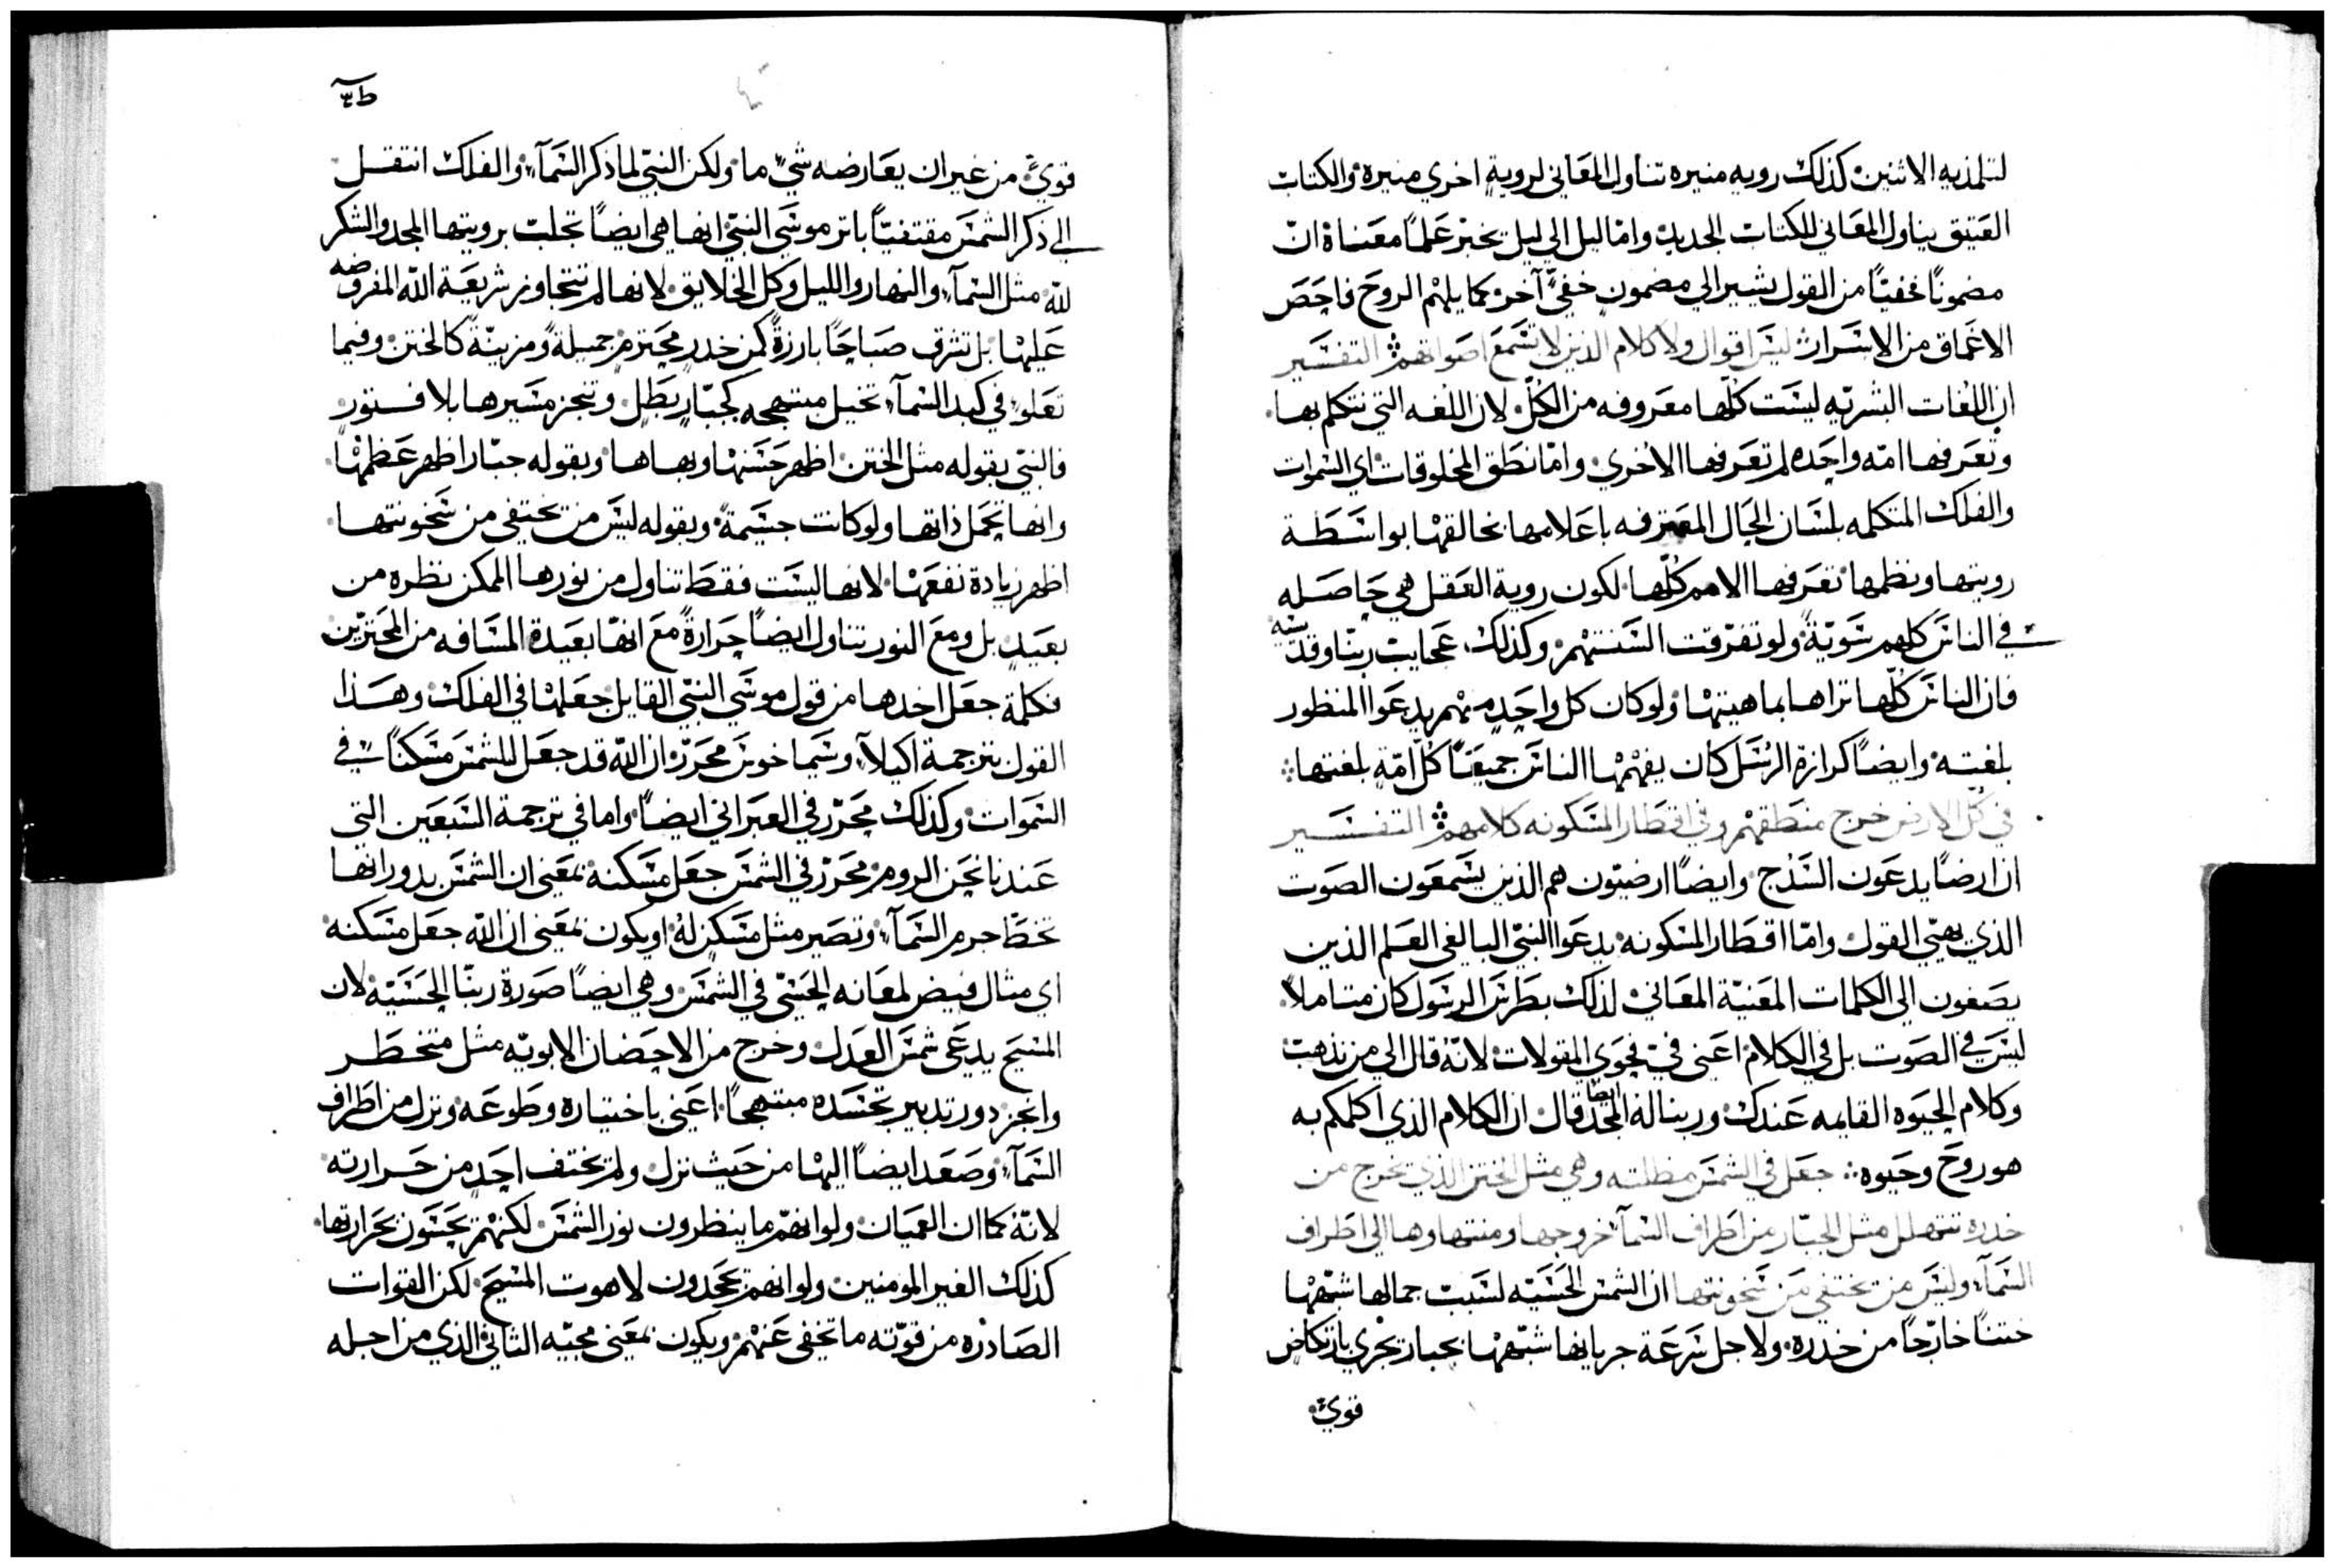 لتلمذيه الاثنين كذلك رويه منيره تناول المعاني لروية اخري منيره والكتاب
العتيق يناول المعاني للكتاب الجديد واما ليل الي ليل يخبر علماً معناه ان
مضموناً مخفيّاً من القول يشير الي مضمون خفيّ آخر كما يلهم الروح فاحص
الاعماق من الاسرار ليس اقوال ولا كلام الذين لا تسمع اصواتهم التفسير
ان اللغات البشريه ليست كلّها معروفه من الكلّ لان اللغه التي نتكلم بها
وتعرفها امّه واحده لم تعرفها الاخري وامّا نطق المخلوقات اي السموات
والفلك المتكلمه بلسان الحال المعترفه باعلامها بخالقها بواسطة
رويتها ونظمها تعرفها الامم كلّها لكون روية العقل هي حاصله
في الناس كلهم سويّةً ولو تفرّقت السنتهم وكذلك عجايب ربنا وقديسيه
فان الناس كلّها تراها بماهيتها ولو كان كل واحدٍ منهم يدعوا المنظور
بلغته وايضاً كرازة الرسل كان يفهمها الناس جميعاً كلّ امّةٍ بلغتها
في كلّ الارض خرج منطقهم وفي اقطار المسكونه كلامهم التفسير
ان ارضاً يدعون السدج وايضاً ارضيّون هم الذين يسمعون الصوت
الذي يهيّي القول وامّا اقطار المسكونه يدعوا النبيّ البالغي العلم الذين
يصغون الي الكلمات المعنيّة المعاني لذلك بطرس الرسول كان متاملاً
ليس في الصوت بل في الكلام اعني في فحوي المقولات لانّه قال الي من نذهب
وكلام الحيوه القايمه عندك وربنا له المجد ايضا قال ان الكلام الذي اكلمكم به
هو روح وحيوه جعل في الشمس مظلته وهي مثل الختن الذي يخرج من
خدره تتهلل مثل الجبّار من اطراف السمآ خروجها ومنتهاها الي اطراف
السمآ وليس من يختفي من سخونتها ان الشمس الحسيّه لسبب جمالها شبّهها
ختناً خارجاً من خدره ولاجل سرعة جريانها شبّهها بجبار يجري بارتكاضٍ
قويّ
قويّ من غير ان يعارضه شيٌ ما ولكن النبيّ لما ذكر السمآ والفلك انتقل
الي ذكر الشمس مقتفيّاً باثر موسي النبيّ انها هي ايضاً تجلب برويتها المجد والشكر
للّه مثل السمآ والنهار والليل وكل الخلايق لانها لم تتجاوز شريعة اللّه المفروضه
عليها بل تشرق صباحاً بارزةً كمن خدرٍ محترمٍ جميلةً ومزينّةً كالختن وفيما
تعلو في كبد السمآ تخيل مبتهجه كجبّارٍ بطلٍ وتنجز مسيرها بلا فتور
فالنبيّ بقوله مثل الختن اظهر حسنها وبهاها وبقوله جبّار اظهر عظمها
وانها تحمل ذاتها ولو كانت جسيمةً وبقوله ليس من يختفي من سخونتها
اظهر زيادة نفعها لانها ليست فقط تناول من نورها الممكن نظره من
بعيدٍ بل ومع النور تناول ايضاً حرارةً مع انها بعيدة المسافه من المحترّين
فكلمة جعل اخدها من قول موسي النبيّ القايل جعلها في الفلك وهذا
القول بترجمة اكيلآ وسيماخوس محرّر ان اللّه قد جعل للشمس مسكناً في
السموات وكذلك محرّر في العبراني ايضاً واما في ترجمة السبعين التي
عندنا نحن الروم محرّر في الشمس جعل مسكنه بمعني ان الشمس بدورانها
تخطّ جرم السمآ وتصير مثل مسكنٍ لهُ او يكون بمعني ان اللّه جعل مسكنه
اي مثال فيض لمعانه الحسّي في الشمس وهي ايضاً صورة ربنّا الحسيّه لان
المسيح يدعي شمس العدل وخرج من الاحضان الابويّه مثل متخطر
وانجز دور تدبير تجسده مبتهجاً اعني باختياره وطوعه ونزل من اطراف
السمآ وصعد ايضاً اليها من حيث نزل ولم يختف احدٍ من حرارته
لانّه كما ان العميان ولو انهّم ما ينظرون نور الشمس لكنهم يحسّون بحرارتها
كذلك الغير المومنين ولو انهم يجحدون لاهوت المسيح لكن القوات
الصادره من قوّته ما تخفي عنهم ويكون بمعني مجيّه الثاني الذي من اجله